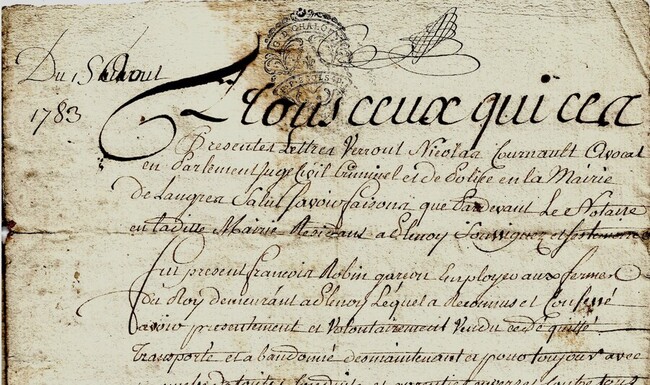 Du 15 Avout
1783
A Tous ceux qui ces
Presentes Lettres Verront Nicolas Tournault Avocat
en Parlement Juge Civil Criminel et de Police en la Mairie
de Langres Salut savoir faisons que Pardevant Le Notaire
en laditte Mairie Residant a Soussigné et
fut present francois Robin garcon Employé aux fermes
du Roy demeurant a Lequel a Reconnus et Confessé
avoir presentement et Volontairement Vendu cedé quitté
Transporté et abandonné des maintenant et pour toujour avec